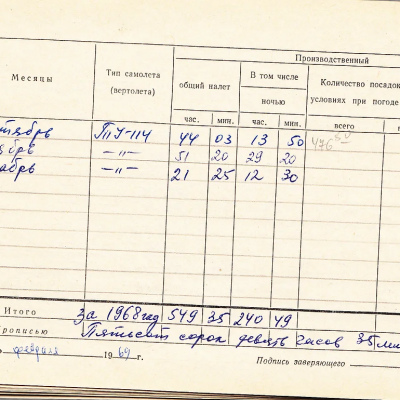 Производственный
Месяцы
Тип самолета (вертолета)
общий налет
В том числе ночью
Количество посадок
условиях при погоде
час. мин. час. мин. всего
тябрь ТУ-114 44 03 13 50
ябрь —"— 51 20 29 20
абрь —"— 21 25 12 30
Итого за 1968 год 549 35 240 49
прописью Пятьсот сорок девять часов 35 мин
февраля 1969 г.
Подпись заверяющего